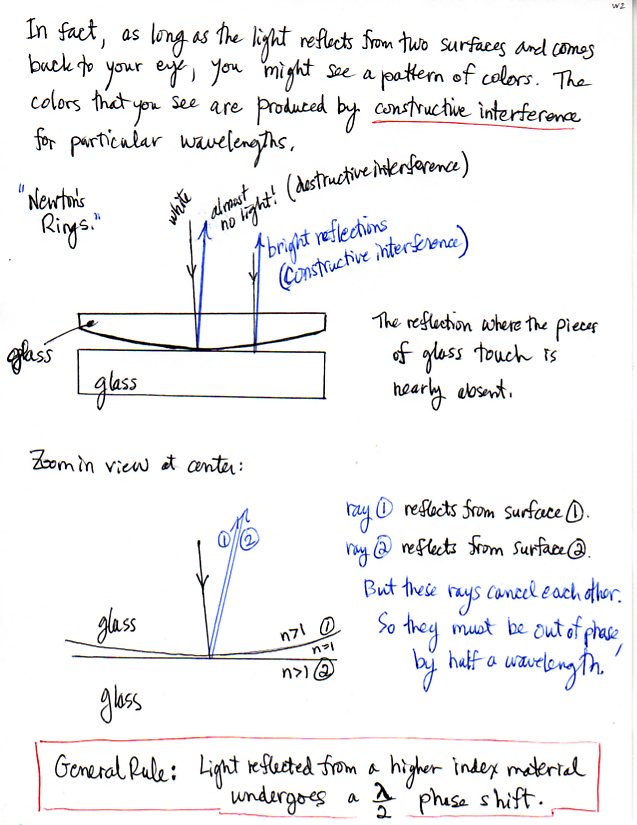 W2
In fact, as long as the light reflects from two surfaces and comes
back to your eye, you might see a pattern of colors. The
colors that you see are produced by constructive interference
for particular wavelengths.
"Newton's
Rings."
white
almost
no light! (destructive interference)
bright reflections
(constructive interference)
glass
glass
The reflection where the pieces
of glass touch is
nearly absent.
Zoom in view at center:
① ②
ray ① reflects from surface ①.
ray ② reflects from surface ②.
But these rays cancel each other.
So they must be out of phase,
by half a wavelength.
glass
n>1 ①
n=1
n>1 ②
glass
General Rule: Light reflected from a higher index material
undergoes a λ/2 phase shift.